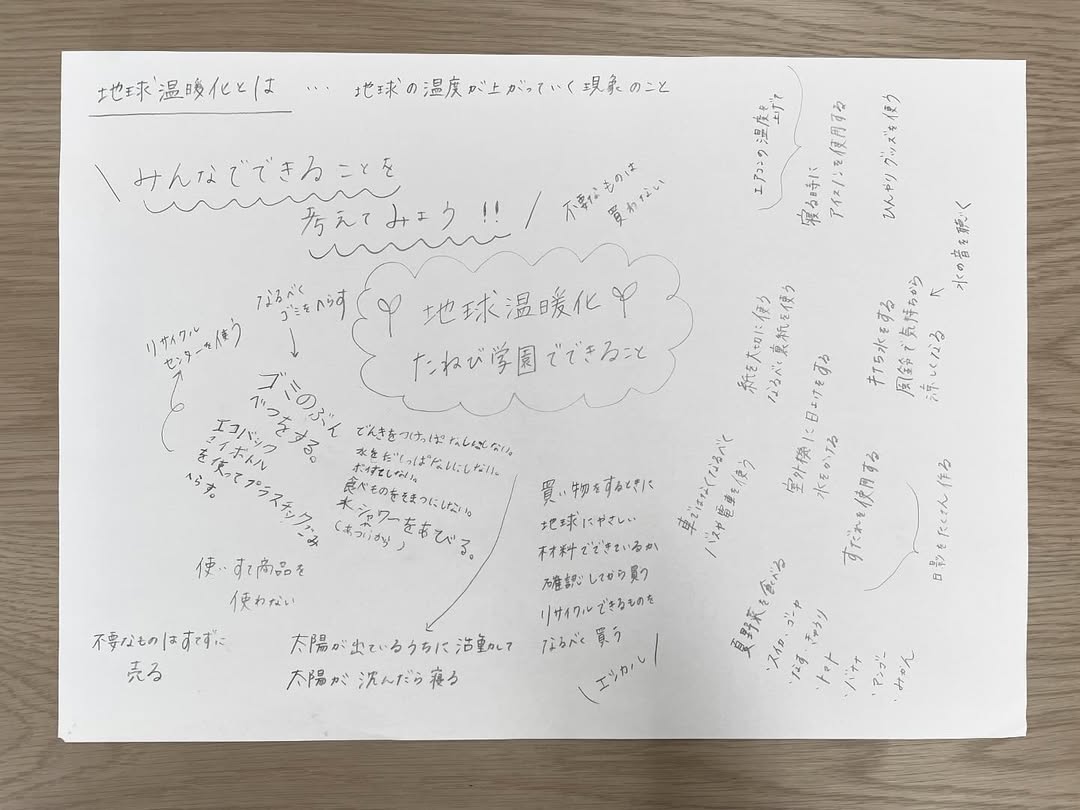 地球温暖化とは … 地球の温度が上がっていく現象のこと
\ みんなでできることを
考えてみよう !! /
不要なものは
買わない
地球温暖化
たねび学園でできること
なるべく
ゴミをへらす
↓
リサイクル
センターを使う
ゴミのぶん
べつをする。
エコバック
マイボトル
を使ってプラスチックごみ
へらす。
でんきをつけっぱなしにしない。
水をだしっぱなしにしない。
ポイすてしない。
食べものをそまつにしない。
水シャワーをあびる。
(あついから)
使いすて商品を
使わない
不要なものはすてずに
売る
太陽が出ているうちに活動して
太陽が沈んだら寝る
買い物をするときに
地球にやさしい
材料でできているか
確認してから買う
リサイクルできるものを
なるべく買う
\ エシカル /
エアコンの温度を
上げて
寝る時に
アイスノンを使用する
ひんやりグッズを使う
紙を大切に使う
なるべく裏紙を使う
打ち水をする
風鈴で気持ちから
涼しくなる
↑
水の音を聴く
車ではなくなるべく
バスや電車を使う
室外機に日よけをする
水をかける
すだれを使用する
日影をたくさん作る
夏野菜を食べる
・スイカ、ゴーヤ
・なす、きゅうり
・トマト
・バナナ
・マンゴー
・みかん